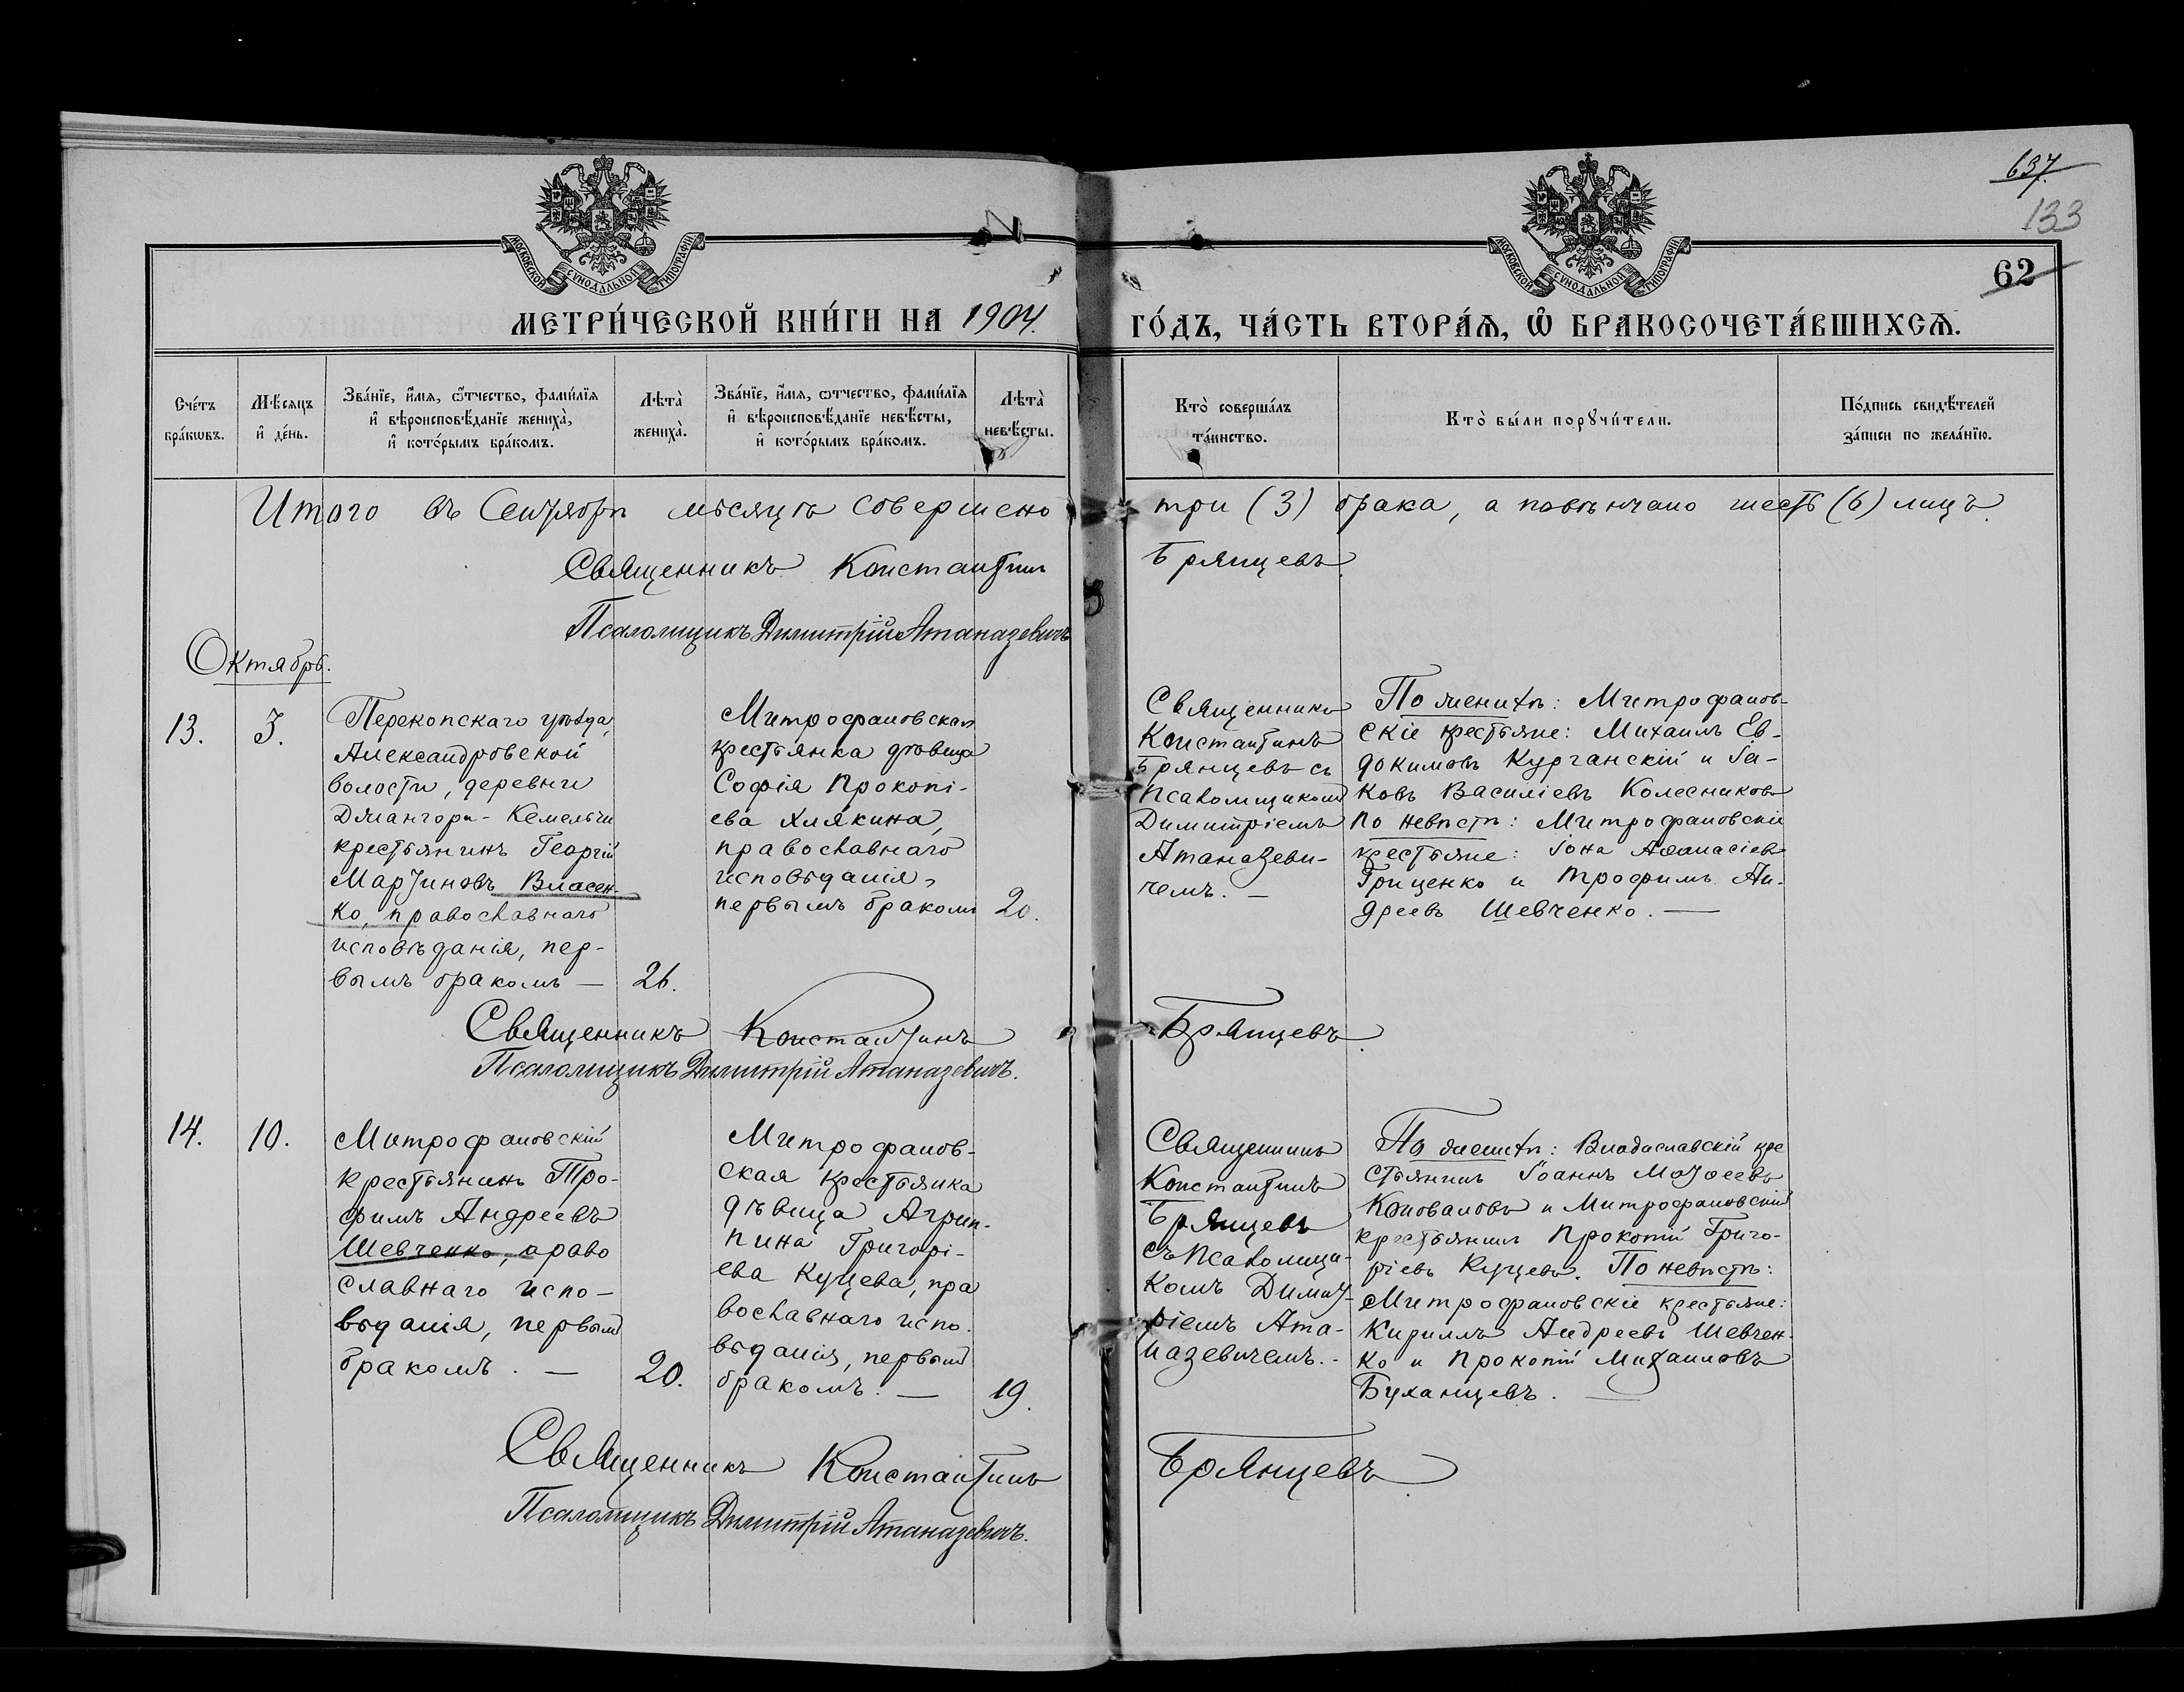 637.
133
62
МОСКОВСКОЙ СѴНОДАЛЬНОЙ ТИПОГРАФІИ
МОСКОВСКОЙ СѴНОДАЛЬНОЙ ТИПОГРАФІИ
МЕТРИ́ЧЕСКОЙ КНИ́ГИ НА 1904. ГО́ДЪ, ЧА́СТЬ ВТОРА́Ѧ, Ѿ БРАКОСОЧЕТА́ВШИХСѦ.
Сче́тъ бра́кѡвъ.
Мѣ́сяцъ и҆ де́нь.
Зва́нїе, и҆́мѧ, ѻ҆́тчество, фами́лїѧ и҆ вѣроисповѣ́данїе жениха̀, и҆ кото́рымъ бра́комъ.
Лѣта̀ жениха̀.
Зва́нїе, и҆́мѧ, ѻ҆́тчество, фами́лїѧ и҆ вѣроисповѣ́данїе невѣ́сты, и҆ кото́рымъ бра́комъ.
Лѣта̀ невѣ́сты.
Кто̀ соверша́лъ та́инство.
Кто̀ бы́ли порꙋчи́тели.
По́дпись свидѣ́телей за́писи по жела́нїю.
Итого въ Сентябрѣ мѣсяцѣ совершено три (3) брака, а повѣнчано шесть (6) лицъ.
Священникъ Константинъ Брянцевъ.
Псаломщикъ Димитрій Атаназевичъ
Октябрь.
13.
3.
Перекопскаго уѣзда,
Александровской
волости, деревни
Джангора-Кемельчи
крестьянинъ Георгій
Мартиновъ Власен-
ко, православнаго
исповѣданія, пер-
вымъ бракомъ —
26.
Митрофановская
крестьянка дѣвица
Софія Прокопі-
ева Хлякина,
православнаго
исповѣданія,
первымъ бракомъ
20.
Священникъ
Константинъ
Брянцевъ съ
псаломщикомъ
Димитріемъ
Атаназеви-
чемъ. —
По женихѣ: Митрофанов-
скіе крестьяне: Михаилъ Ев-
докимовъ Курганскій и Іа-
ковъ Василіевъ Колесниковъ
По невѣстѣ: Митрофановскіе
крестьяне: Іона Аѳанасіевъ
Гриценко и Трофимъ Ан-
дреевъ Шевченко. —
Священникъ Константинъ Брянцевъ.
Псаломщикъ Димитрій Атаназевичъ.
14.
10.
Митрофановскій
крестьянинъ Тро-
фимъ Андреевъ
Шевченко, право
славнаго испо-
вѣданія, первымъ
бракомъ. —
20.
Митрофанов-
ская крестьянка
дѣвица Агрип-
пина Григорі-
ева Куцева, пра
вославнаго испо-
вѣданія, первымъ
бракомъ. —
19.
Священникъ
Константинъ
Брянцевъ
съ псаломщи-
комъ Димит-
ріемъ Ата-
назевичемъ. -
По женихѣ: Владиславскій кре
стьянинъ Іоаннъ Матѳеевъ
Коноваловъ и Митрофановскій
крестьянинъ Прокопій Григо-
ріевъ Куцевъ. По невѣстѣ:
Митрофановскіе крестьяне:
Кириллъ Андреевъ Шевчен-
ко и Прокопій Михаиловъ
Буханцевъ. —
Священникъ Константинъ Брянцевъ.
Псаломщикъ Димитрій Атаназевичъ.